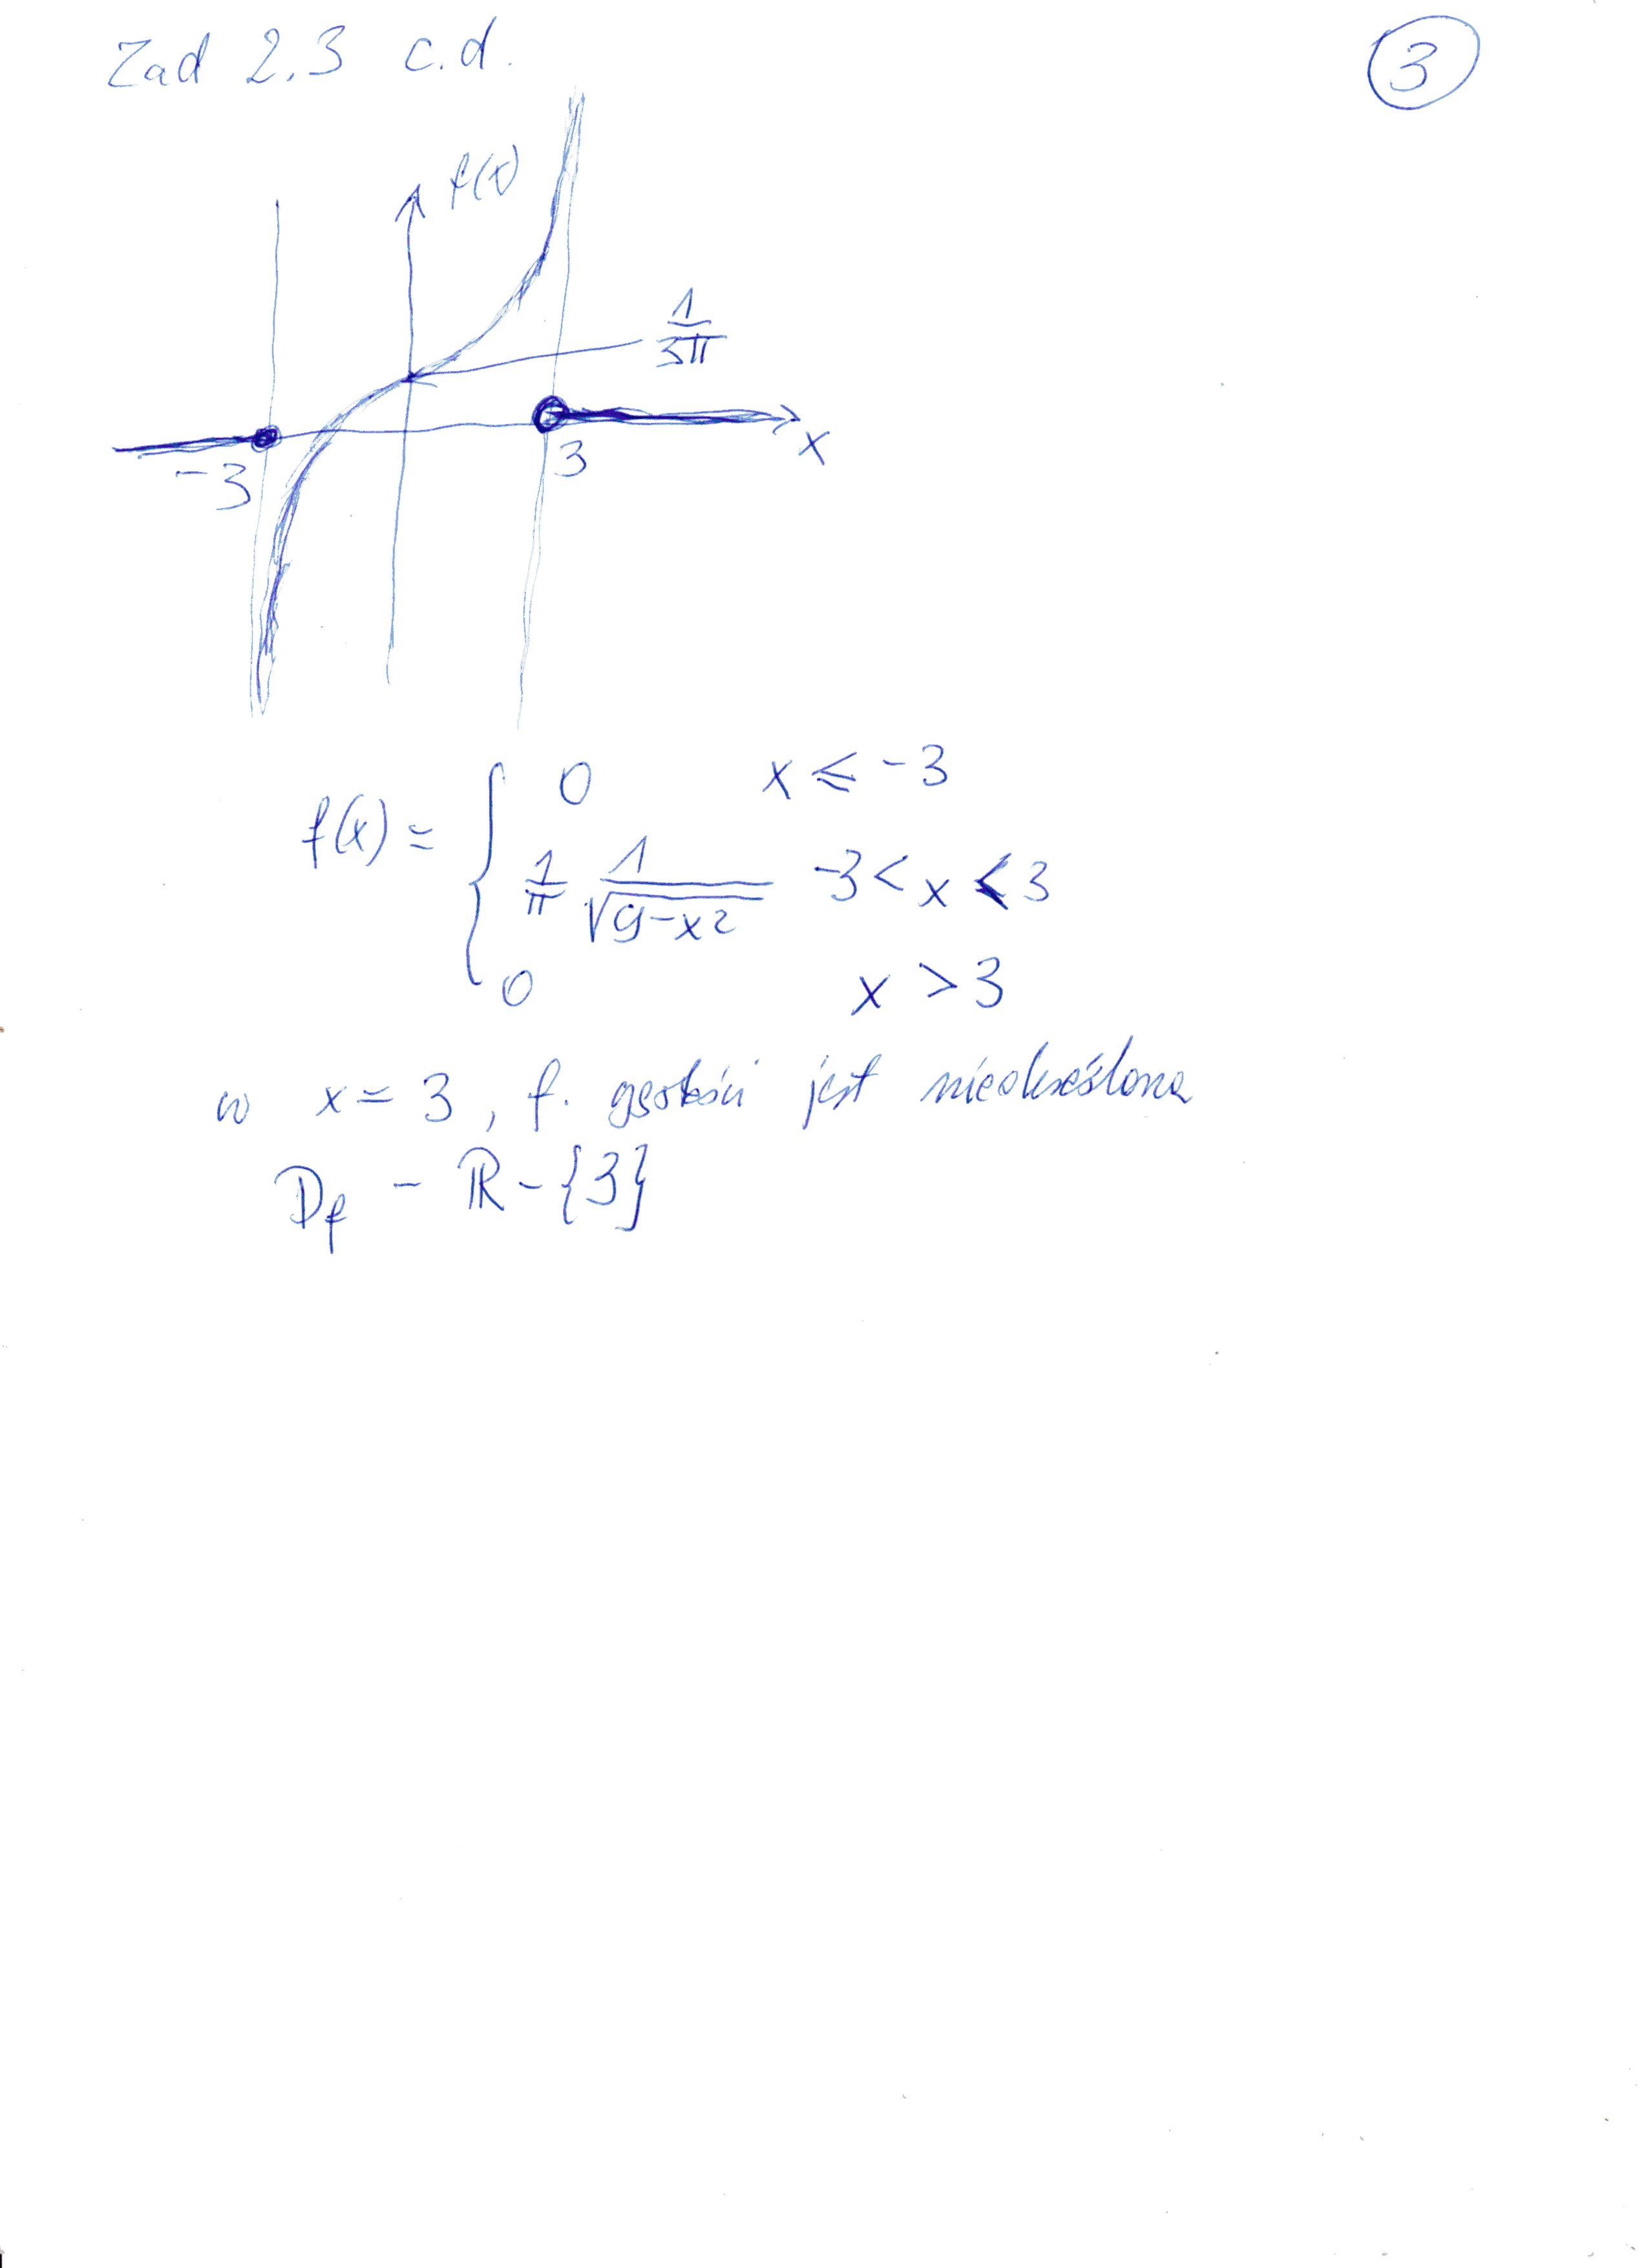 Zad 2.3 c.d.
3
f(x)
1/3π
-3
3
x
f(x) = { 0 x ≤ -3
1/π 1/√(9-x²) -3 < x < 3
0 x > 3
w x = 3, f. gęstości jest nieokreślona
D_f - ℝ - {3}